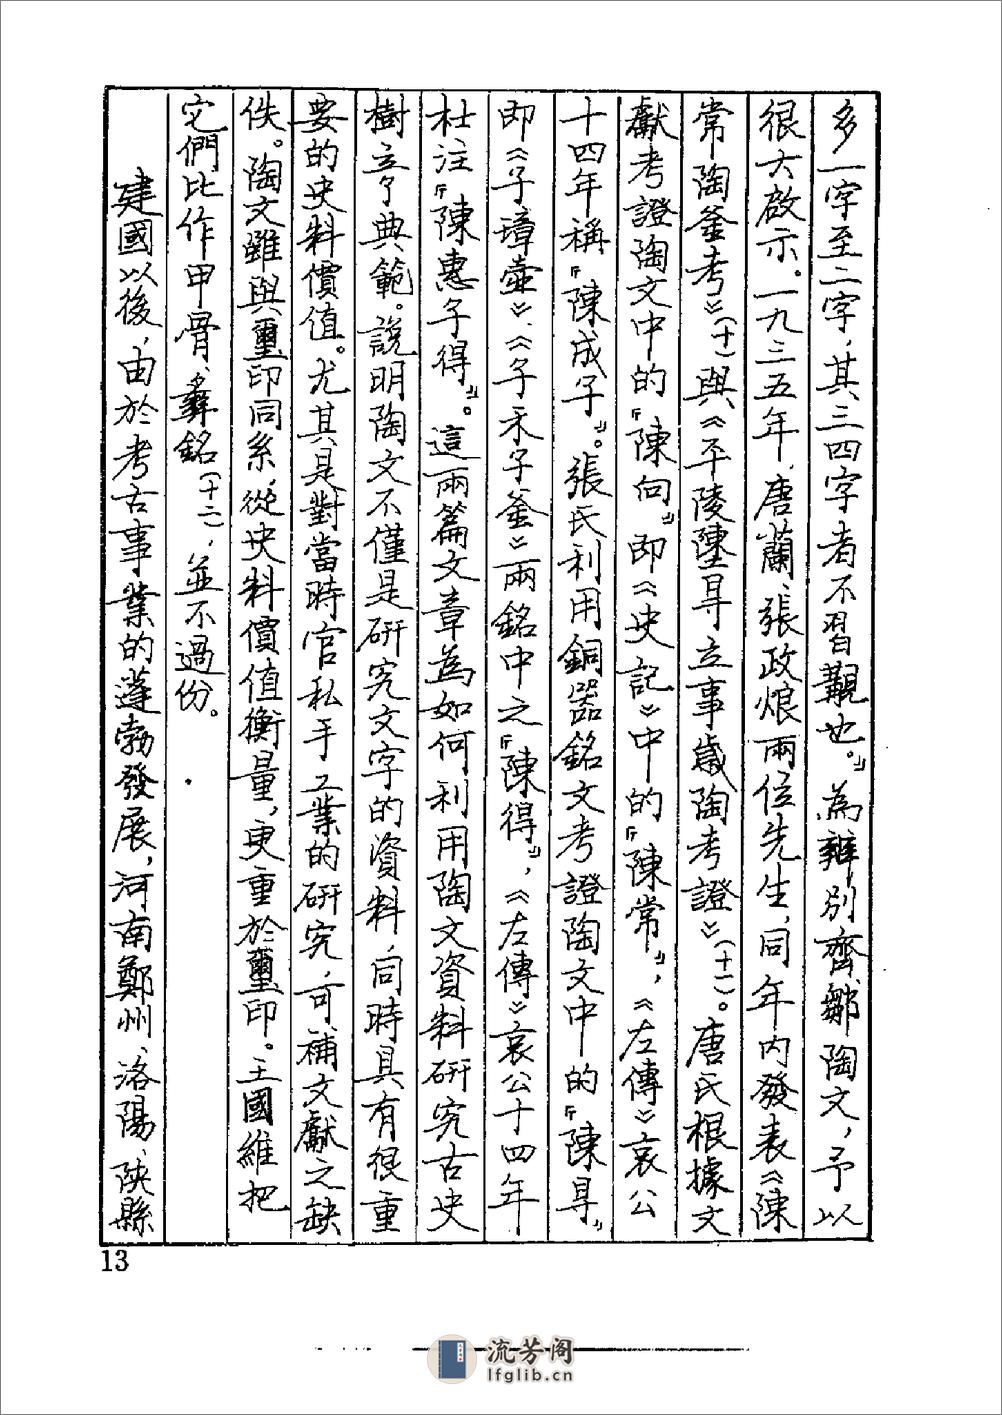 多一字至二字，其三四字者不習覯也。」為辨別齊鄒陶文，予以
很大啟示。一九三五年，唐蘭、張政烺兩位先生，同年內發表《陳
常陶釜考》（十）與《平陵陳㝵立事歲陶考證》（十一）。唐氏根據文
獻考證陶文中的「陳向」即《史記》中的「陳常」，《左傳》哀公
十四年稱「陳成子」。張氏利用銅器銘文考證陶文中的「陳㝵」
即《子璋壺》、《子禾子釜》兩銘中之「陳得」，《左傳》哀公十四年
杜注「陳惠子得」。這兩篇文章為如何利用陶文資料研究古史
樹立了典範。說明陶文不僅是研究文字的資料，同時具有很重
要的史料價值。尤其是對當時官私手工業的研究，可補文獻之缺
佚。陶文雖與璽印同系，從史料價值衡量，更重於璽印。王國維把
它們比作甲骨、彝銘（十二），並不過份。
建國以後，由於考古事業的蓬勃發展，河南鄭州、洛陽、陝縣
13
流芳阁
lfglib.cn